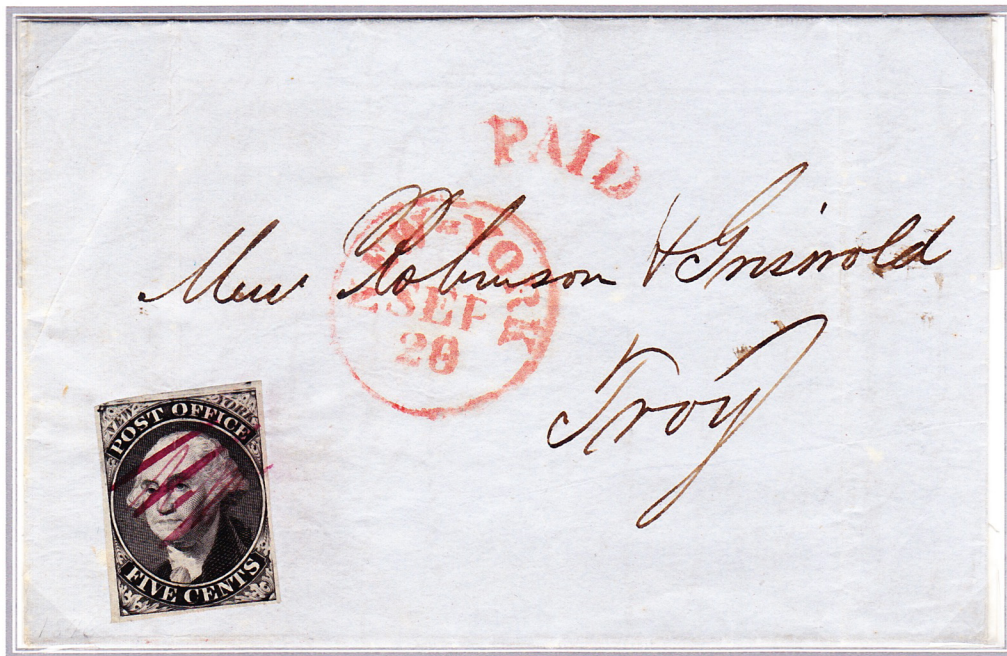 PAID
NEW-YORK
SEP
20
Mess Robinson & Griswold
Troy
NEW YORK
POST OFFICE
FIVE CENTS